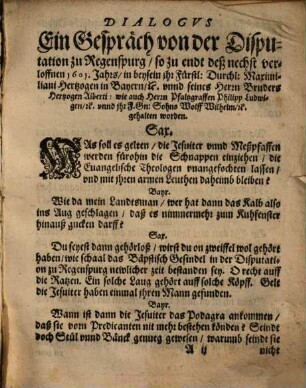 DIALOGVS
Ein Gespräch von der Dispu-
tation zu Regenspurg / so zu endt deß nechst ver-
loffnen 1601. Jahrs / in beysein jhr Fürstl: Durchl: Maximi-
liani Hertzogen in Bayern / ꝛc. vnnd seines Herrn Bruders
Hertzogen Alberti: wie auch Herrn Pfaltzgraffen Philipp Ludwi-
gen / ꝛc. vnnd jhr F. Gn: Sohns Wolff Wilhelm / ꝛc.
gehalten worden.
Sax.
WAs soll es gelten / die Jesuiter vnnd Meßpfaffen
werden fürohin die Schnappen einziehen / die
Euangelische Theologen vnangefochten lassen /
vnd mit jhren armen Leuthen dahaimb bleiben?
Bayr.
Wie da mein Landtsman / wer hat dann das Kalb also
ins Aug geschlagen / daß es nimmermehr zum Kuhfenster
hinauß gucken darff?
Sax.
Du seyest dann gehörloß / wirst du on zweiffel wol gehört
haben / wie schaal das Bäpstisch Gesindel in der Disputatio-
n zu Regenspurg newlicher zeit bestanden sey. O recht auff
die Ratzen. Ein solche Laug gehört auff solche Köpff. Gelt
die Jesuiter haben einmal jhren Mann gefunden.
Bayr.
Wann ist dann die Jesuiter das Podagra ankommen /
daß sie vorm Predicanten nit mehr bestehen köndten? Seindt
doch Stül vnnd Bänck genurg gewesen / warumb seindt sie
A ij nicht